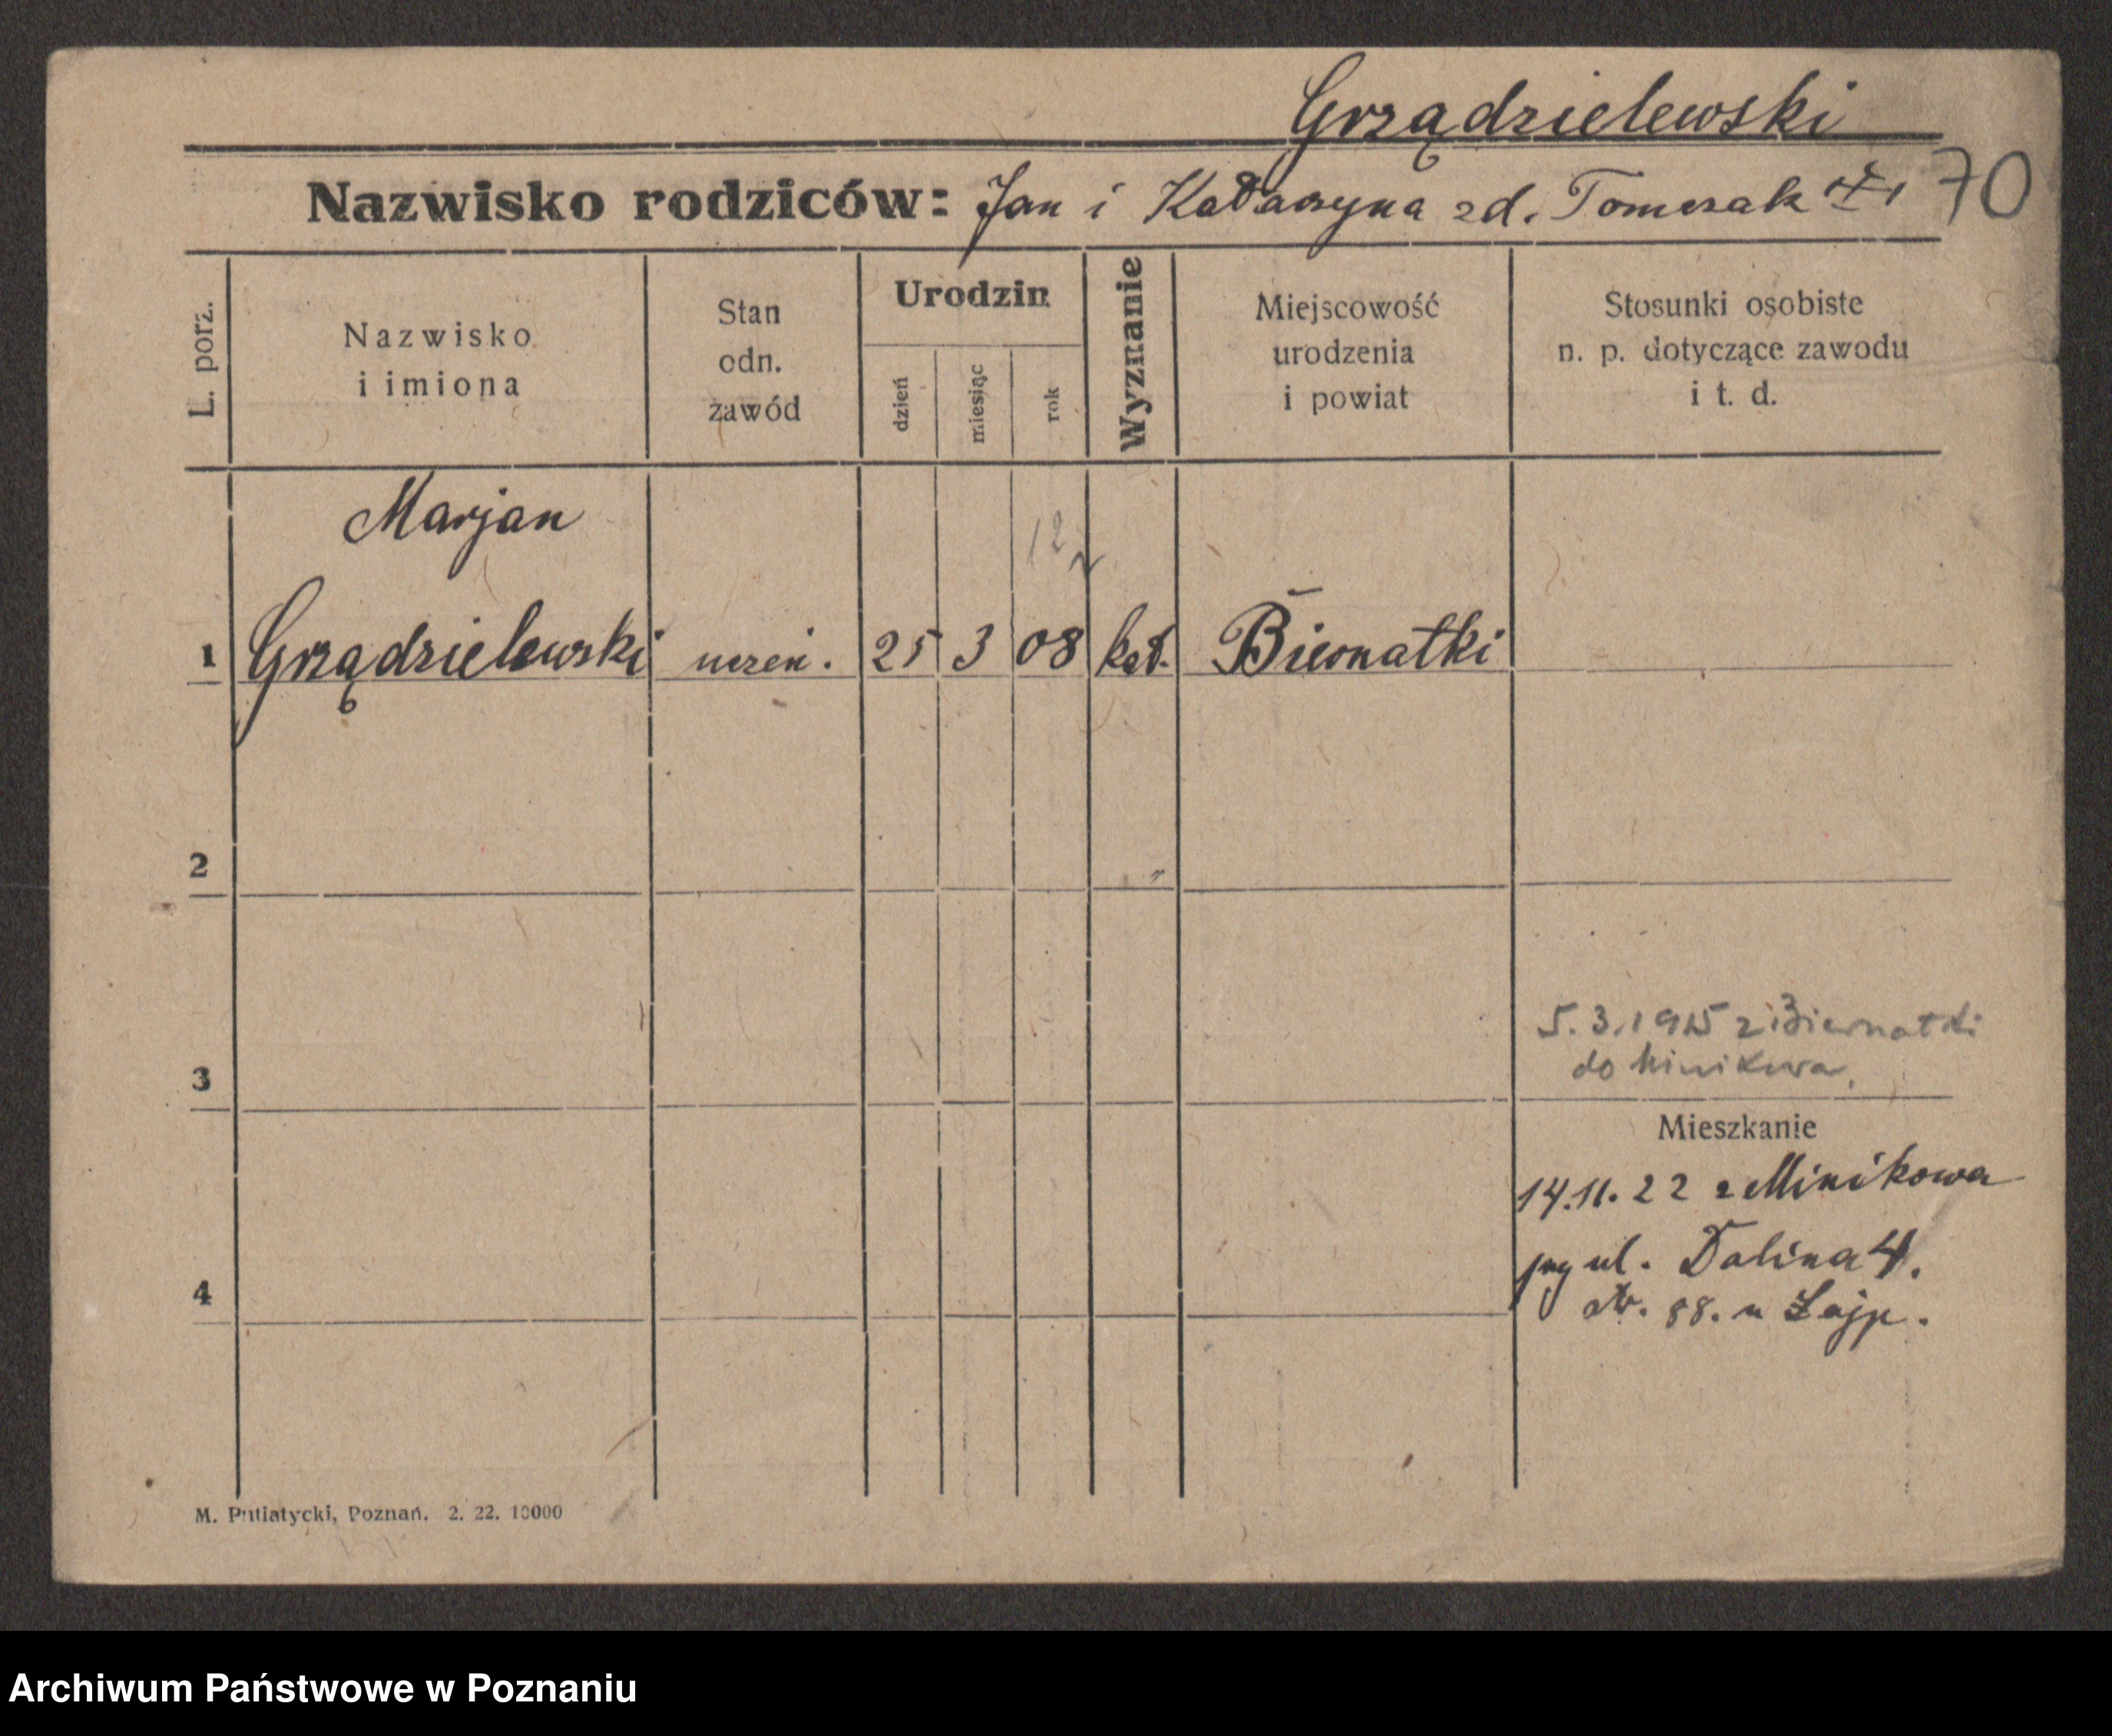 Grządzielewski
Nazwisko rodziców: Jan i Katarzyna zd. Tomczak 70
L. porz.
Nazwisko
i imiona
Stan
odn.
zawód
Urodzin
dzień
miesiąc
rok
Wyznanie
Miejscowość
urodzenia
i powiat
Stosunki osobiste
n. p. dotyczące zawodu
i t. d.
Marjan
12
1 Grządzielewski uczeń. 25 3 08 kat. Biernatki
2
5. 3. 1915 z Biernatki
do Minikowa
3
Mieszkanie
14.11.22 z Minikowa
ul. Dolina 4.
4
88. u
M. Putiatycki, Poznań. 2. 22. 10000
Archiwum Państwowe w Poznaniu